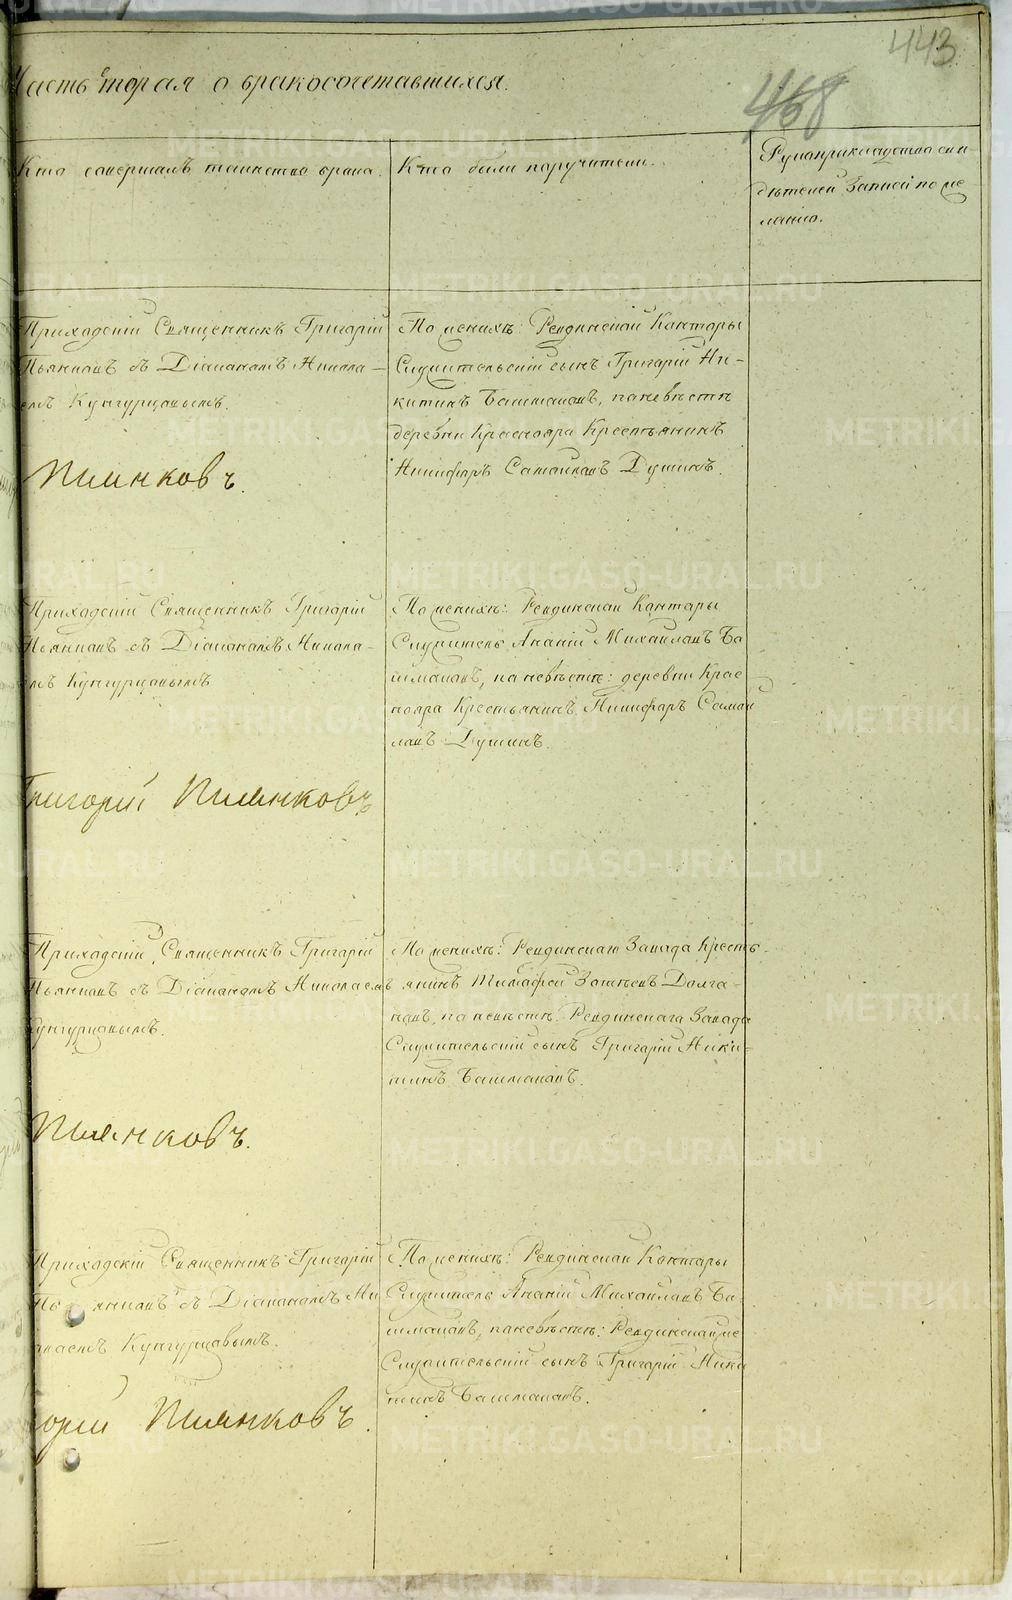 443
Часть вторая о бракосочетавшихся.
468
Кто совершалъ таинство брака.
Кто были поручители.
Рукоприкладство сви-
дѣтелей записи по же-
ланию.
Приходскій Священникъ Григорій
Пьянковъ съ Діакономъ Никола-
емъ Кунгурцовымъ.
Пиянковъ.
По женихѣ: Ревдинской Конторы
Служительскій сынъ Григорій Ни-
китинъ Башмаковъ, по невѣстѣ
деревни Краснояра Крестьянинъ
Никифоръ Самойловъ Душинъ.
Приходскій Священникъ Григорій
Пьянковъ съ Діакономъ Никола-
емъ Кунгурцовымъ
Григорій Пиянковъ
По женихѣ: Ревдинской Конторы
Служитель Ананій Михайловъ Ба
шмаковъ, по невѣстѣ: деревни Крас
нояра Крестьянинъ Никифоръ Самой
ловъ Душинъ.
Приходскій Священникъ Григорій
Пьянковъ съ Діакономъ Николаемъ
Кунгурцовымъ.
Пиянковъ.
По женихѣ: Ревдинскаго Завода Кресть-
янинъ Тимофей Зотѣевъ Долга-
новъ, по невѣстѣ: Ревдинскаго Завода
Служительскій сынъ Григорій Ники-
тинъ Башмаковъ.
Приходскій Священникъ Григорій
Пьянковъ съ Діакономъ Ни
колаемъ Кунгурцовымъ.
горій Пиянковъ.
По женихѣ: Ревдинской Конторы
Служитель Ананій Михайловъ Ба-
шмаковъ, по невѣстѣ: Ревдинской же
Служительскій сынъ Григорій Ники
тинъ Башмаковъ.
METRIKI.GASO-URAL.RU